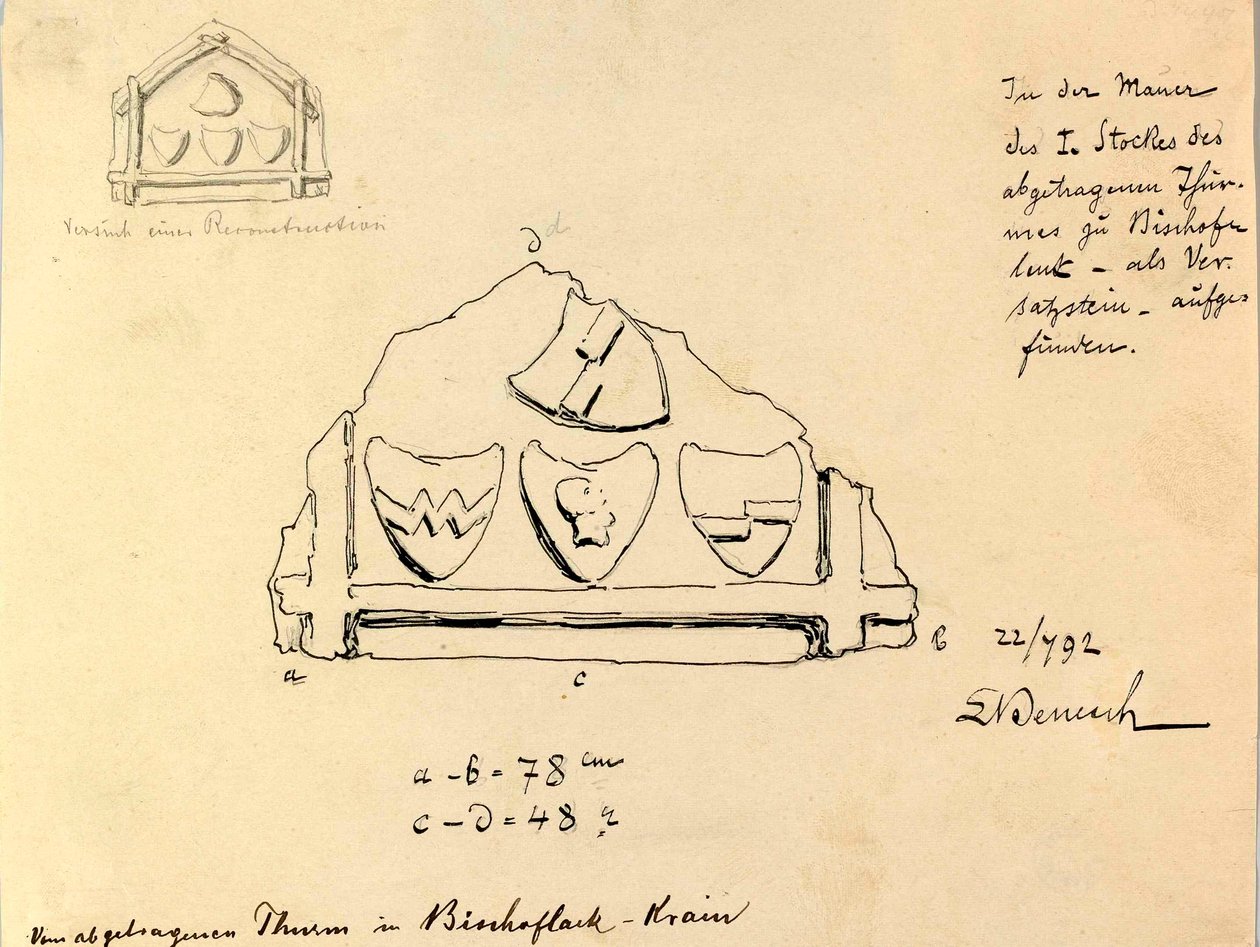 Versuch einer Reconstruction
In der Mauer
des I. Stockes des
abgetragenen Thur-
mes zu Bischofs-
- als Ver-
satzstein - aufge-
funden.
d d
a
c
b
22/792
Benesch
a - b = 78 cm
c - d = 48 "
Vom abgetragenen Thurm in Bischoflack - Krain